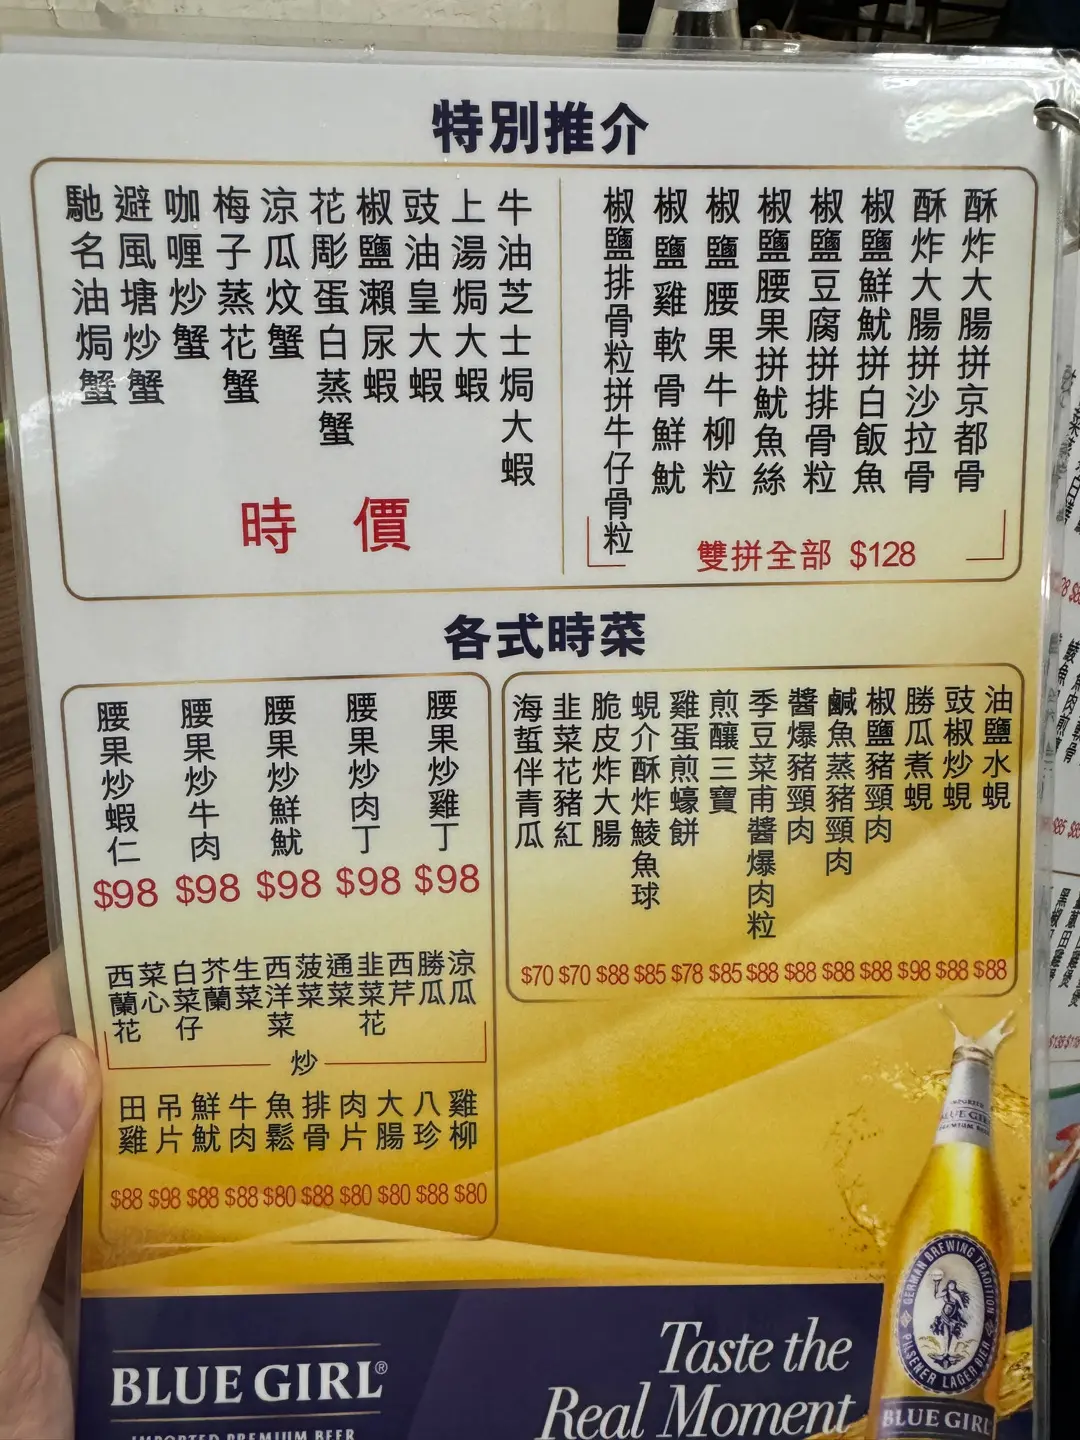 特別推介
酥炸大腸拼京都骨
酥炸大腸拼沙拉骨
椒鹽鮮魷拼白飯魚
椒鹽豆腐拼排骨粒
椒鹽腰果拼魷魚絲
椒鹽腰果牛柳粒
椒鹽雞軟骨鮮魷
椒鹽排骨粒拼牛仔骨粒
雙拼全部 $128
牛油芝士焗大蝦
上湯焗大蝦
豉油皇大蝦
椒鹽瀨尿蝦
花彫蛋白蒸蟹
涼瓜炆蟹
梅子蒸花蟹
咖喱炒蟹
避風塘炒蟹
馳名油焗蟹
時價
各式時菜
油鹽水蜆
$88
豉椒炒蜆
$88
勝瓜煮蜆
$98
椒鹽豬頸肉
$88
鹹魚蒸豬頸肉
$88
醬爆豬頸肉
$88
季豆菜甫醬爆肉粒
$88
煎釀三寶
$85
雞蛋煎蠔餅
$78
蜆介酥炸鯪魚球
$85
脆皮炸大腸
$88
韭菜花豬紅
$70
海蜇伴青瓜
$70
腰果炒雞丁
$98
腰果炒肉丁
$98
腰果炒鮮魷
$98
腰果炒牛肉
$98
腰果炒蝦仁
$98
涼瓜
勝瓜
西芹
韭菜花
通菜
菠菜
西洋菜
生菜
芥蘭
白菜仔
菜心
西蘭花
炒
雞柳
$80
八珍
$88
大腸
$80
肉片
$80
排骨
$88
魚鬆
$80
牛肉
$88
鮮魷
$88
吊片
$98
田雞
$88
BLUE GIRL®
IMPORTED PREMIUM BEER
Taste the
Real Moment
BLUE GIRL
PREMIUM BEER
GERMAN BREWING TRADITION
PILSENER LAGER BEER
BLUE GIRL